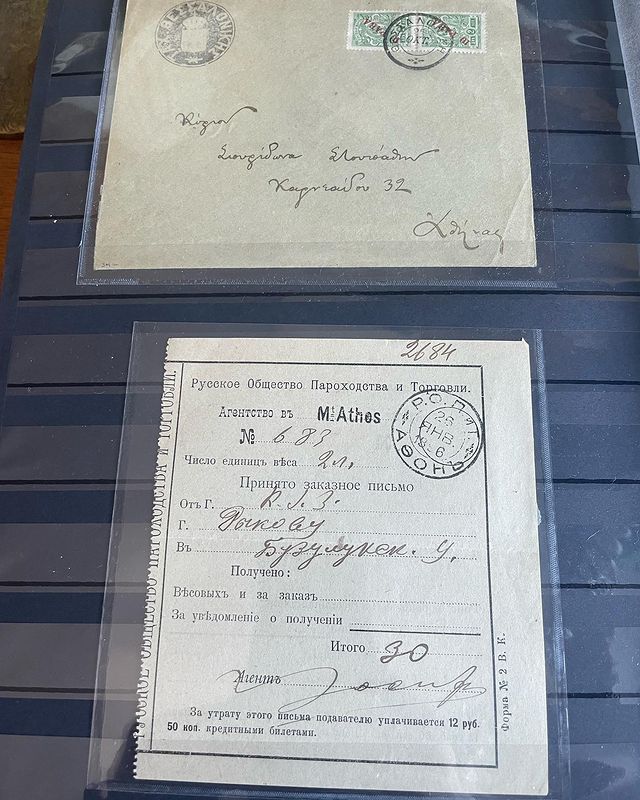 Κύριον
Σπυρίδωνα
Καρνεάδου 32
Ἀθήνας
2684
Русское Общество Пароходства и Торговли.
Агентство въ Mt Athos
№ 683
Число единицъ вѣса 2 л.
Принято заказное письмо
Отъ Г.
Г. Рыкову
Въ Бузулукск. у.
Получено:
Вѣсовыхъ и за заказъ
За увѣдомленіе о полученіи
Итого 30
Агентъ
За утрату этого письма подавателю уплачивается 12 руб.
50 коп. кредитными билетами.
Форма № 2 В. К.
Р.О.П.иТ.
26
ЯНВ.
АѲОНЪ
РУССКОЕ ОБЩЕСТВО ПАРОХОДСТВА И ТОРГОВЛИ.